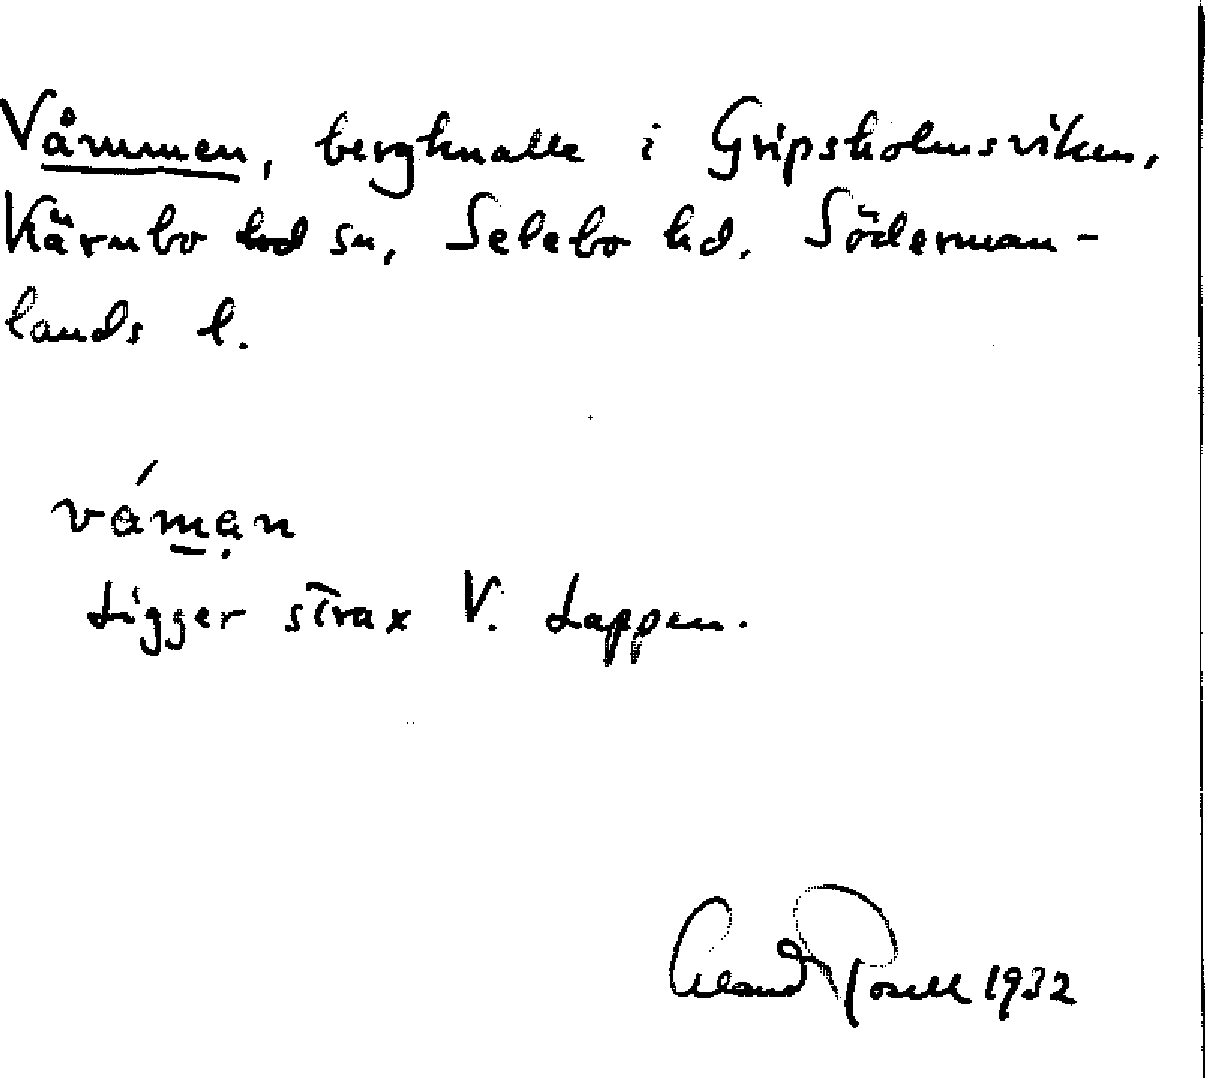 Våmmen, bergknalle i Gripsholmsviken,
Kärnbo sn, Selebo hd. Söderman-
lands l.
våmạn
Ligger strax V. Lappen.
Rosell 1932